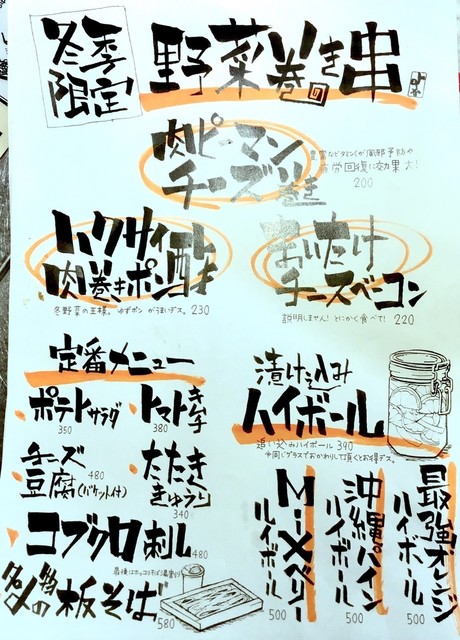 冬季
限定
野菜巻き串
肉ピーマン
チーズ巻き
豊富なビタミンCが風邪予防や
疲労回復に効果大!
200
ハクサイ
肉巻きポン酢
冬野菜の王様。ゆずポンがうまいデス。230
しいたけ
チーズベーコン
説明しません!とにかく食べて! 220
定番メニュー
ポテトサラダ
350
トマトキムチ
380
チーズ
豆腐(バケット付)
480
たたき
きゅうり
340
コブクロ刺し 480
名物
板そば
580
漬け込み
ハイボール
追い込みハイボール 390
※同じグラスでおかわりして頂くとお得デス。
MIXベリー
ハイボール
500
沖縄パイン
ハイボール
500
最強!オレンジ
ハイボール
500